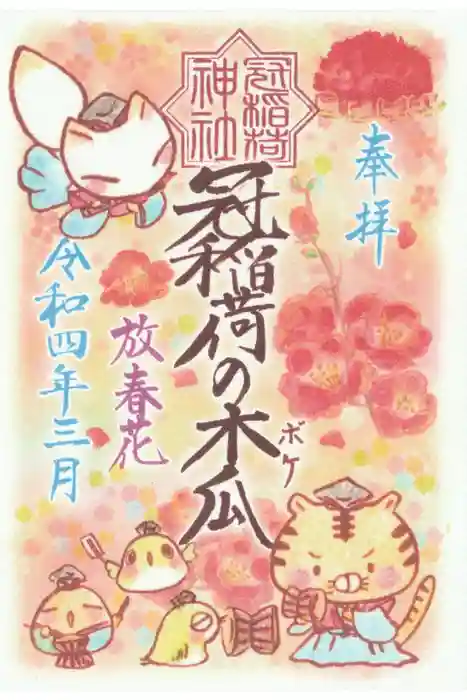 奉拝
冠稲荷
神社
冠稲荷の木瓜
ボケ
放春花
令和四年三月